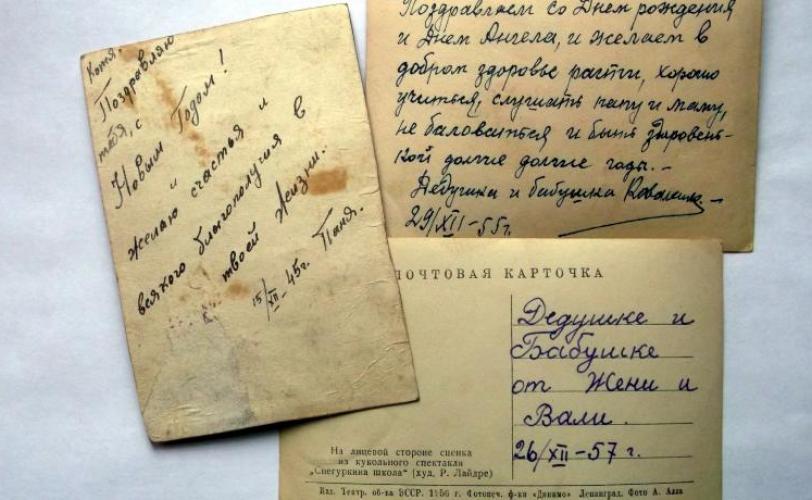 Котя.
Поздравляю
тебя, с
Новым Годом!
и
желаю счастья и
всякого благополучия в
твоей жизни.
15/XII-45г. Таня.
Поздравляем со Днем рождения
и Днем Ангела, и желаем в
добром здоровье расти, хорошо
учиться, слушать папу и маму,
не баловаться и быть здоровень-
кой долгие долгие годы.-
Дедушка и бабушка
29/XII-55г.
ПОЧТОВАЯ КАРТОЧКА
Дедушке и
Бабушке
от Жени и
Вали.
26/XII-57г.
На лицевой стороне сценка
из кукольного спектакля
„Снегуркина школа“ (худ. Р. Лайдре)
Изд. Театр. об-ва ЭССР. 1956 г. Фотопеч. ф-ки «Динамо» Ленинград. Фото А. Алла